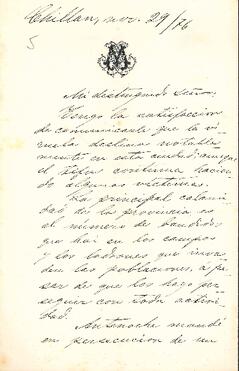 Chillan, nov. 29/76
5
Mi distinguido señor:
Tengo la satisfaccion
de comunicarle que la vi-
ruela declina notable-
mente en esta ciudad; aunque
el tífus continúa hacien-
do algunas víctimas.
La principal calami-
dad de la provincia es
el número de bandidos
que hai en los campos
y los ladrones que inva-
den las poblaciones, a pe-
sar de que los hago per-
seguir con toda activi-
dad.
Antenoche mandé
en persecucion de un